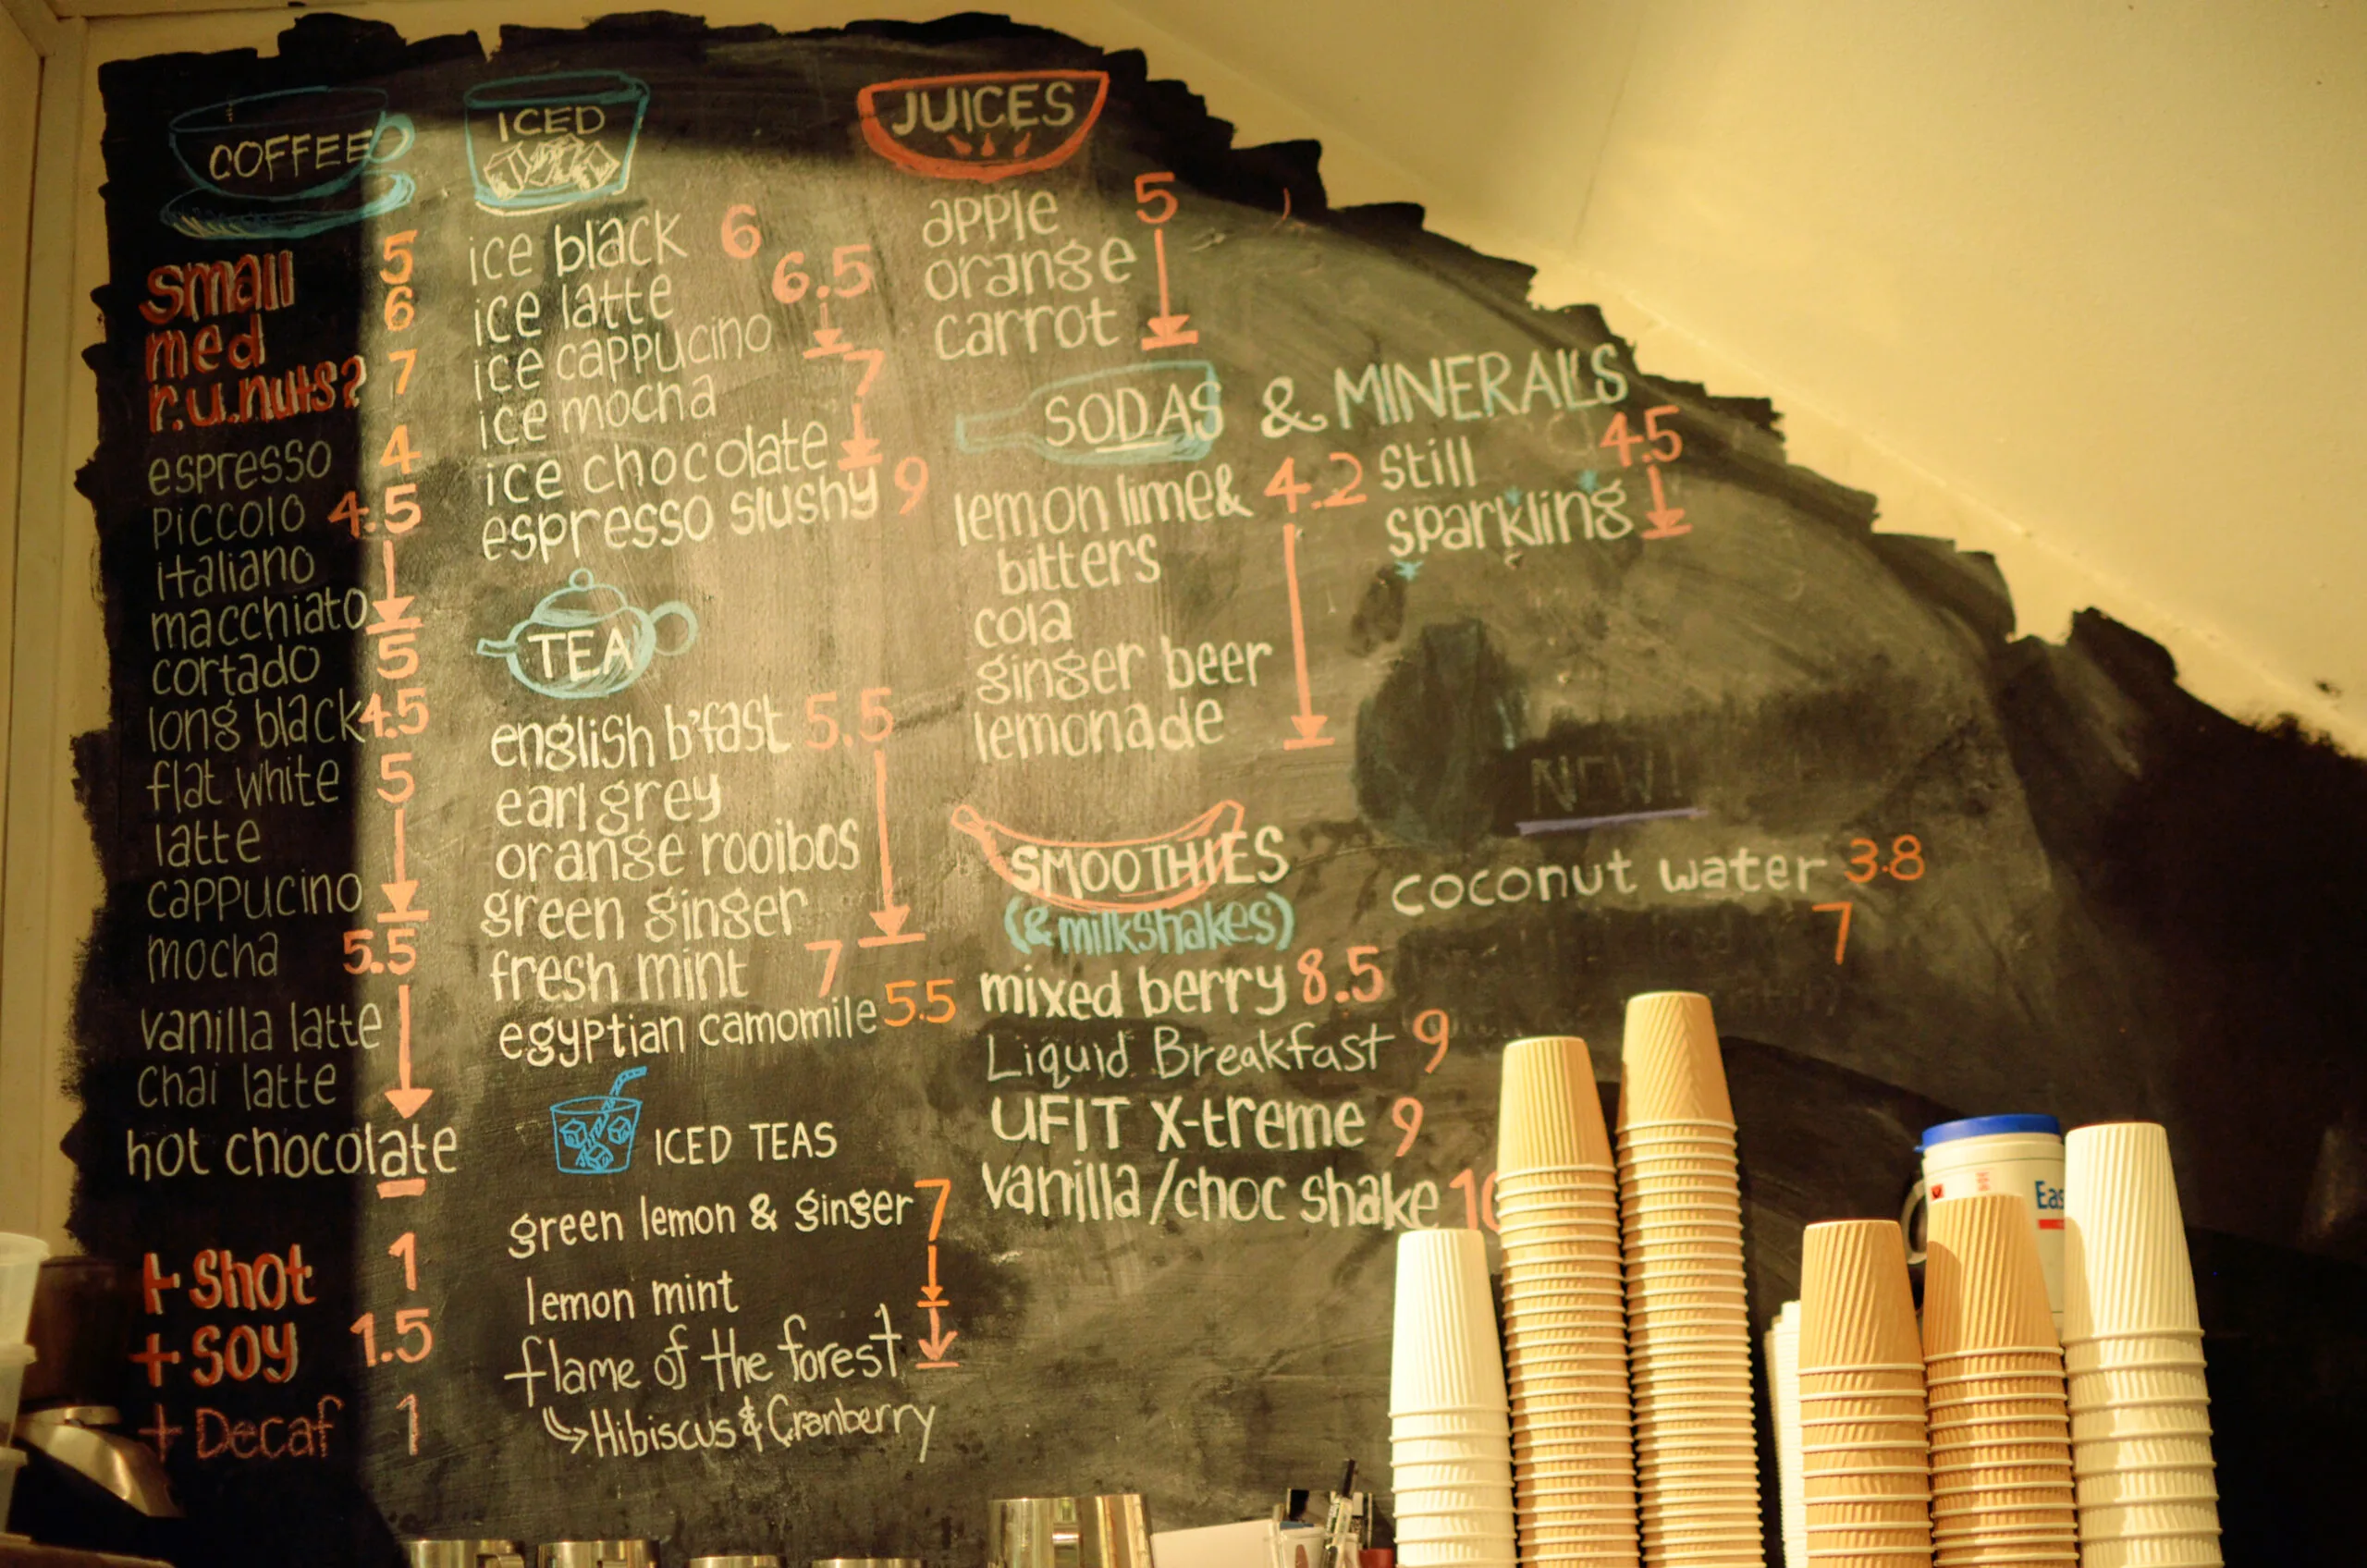 COFFEE
small 5
med 6
r.u.nuts? 7
espresso 4
piccolo 4.5
italiano
macchiato
cortado 5
long black 4.5
flat white 5
latte
cappucino
mocha 5.5
vanilla latte
chai latte
hot chocolate
+ shot 1
+ soy 1.5
+ Decaf 1
ICED
ice black 6
ice latte 6.5
ice cappucino
ice mocha 7
ice chocolate
espresso slushy 9
TEA
english b'fast 5.5
earl grey
orange rooibos
green ginger
fresh mint 7
egyptian camomile 5.5
ICED TEAS
green lemon & ginger 7
lemon mint
flame of the forest
Hibiscus & Cranberry
JUICES
apple 5
orange
carrot
SODAS & MINERALS
lemon lime & 4.2
bitters
cola
ginger beer
lemonade
still 4.5
sparkling
SMOOTHIES
(& milkshakes)
mixed berry 8.5
Liquid Breakfast 9
UFIT X-treme 9
vanilla/choc shake 10
NEW!
coconut water 3.8
7
Eas